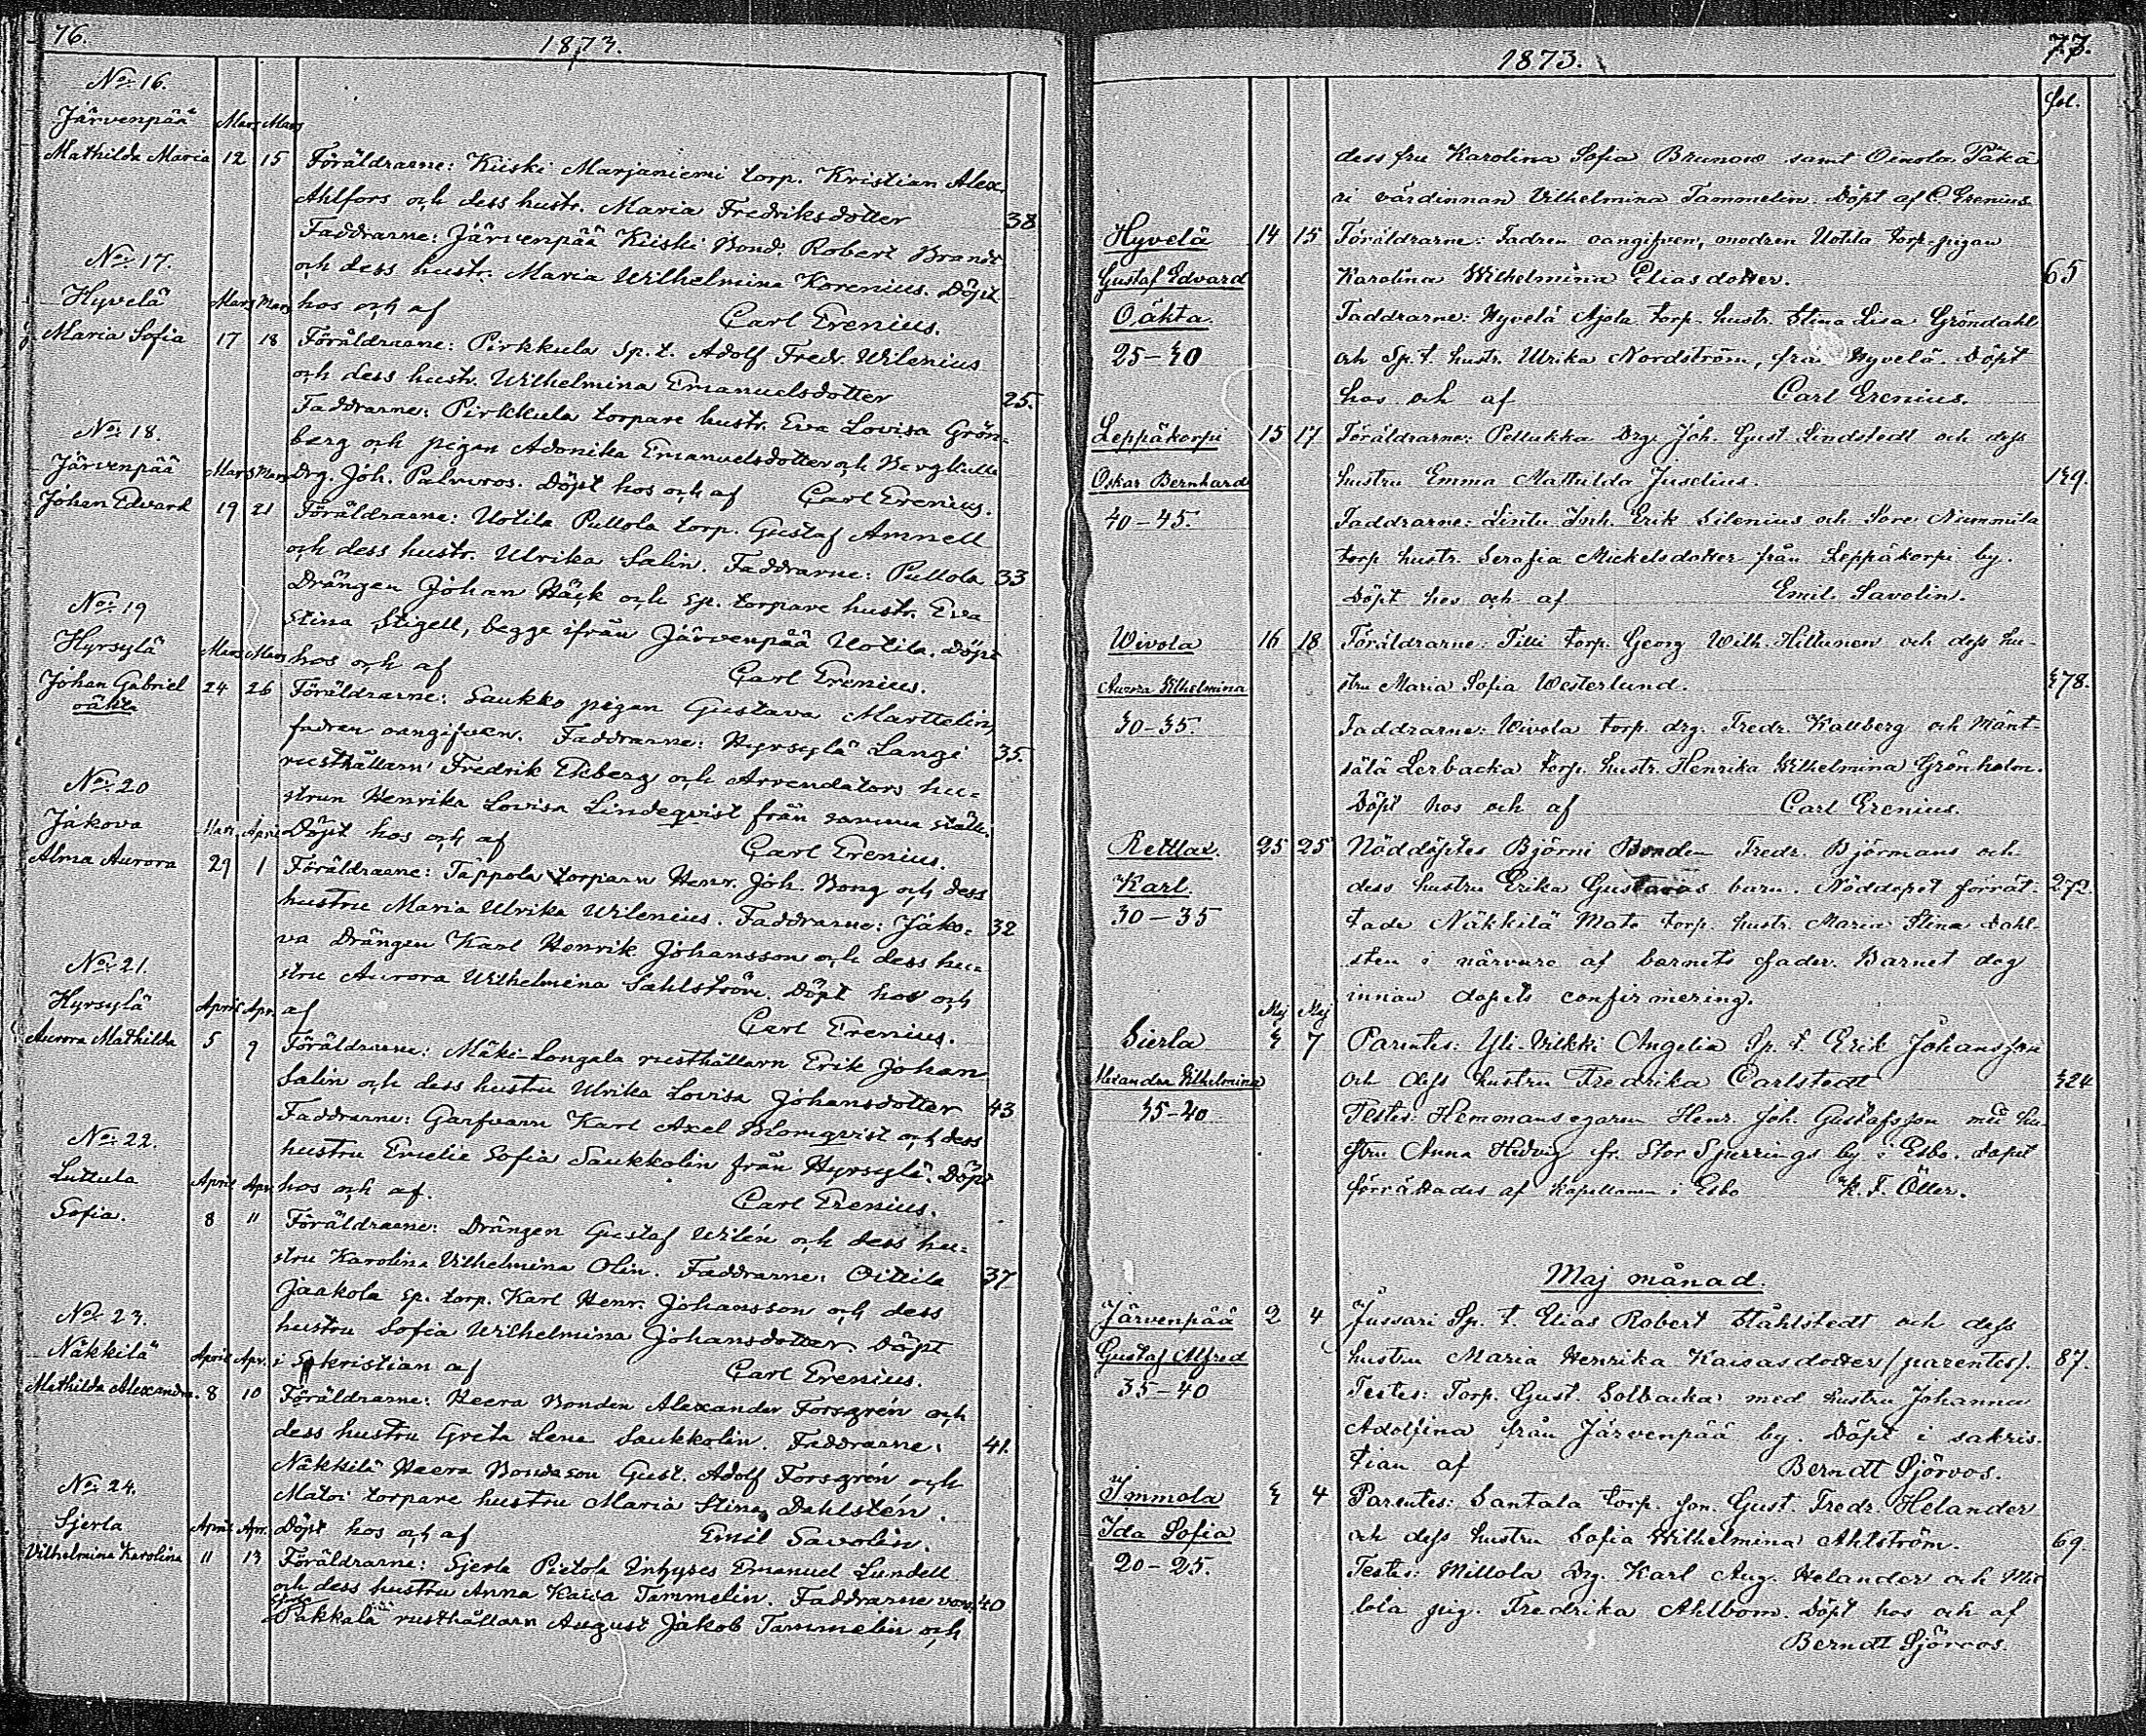 76.
1873.
No: 16.
Järvenpää Mars Mars
Mathilda Maria 12 15 Föräldrarne: Kiiski Marjaniemi torp. Kristian Alex.
Ahlfors och dess hustr. Maria Fredriksdotter 38
Faddrarne: Järvenpää Kiiski Bond. Robert Brandt
No: 17.
och dess hustr. Maria Wilhelmina Korenius. Döpt
Hyvelä Mars Mars hos och af Carl Erenius.
Maria Sofia 17 18 Föräldrarne: Pirkkula Sp. t. Adolf Fredr. Wilenius
och dess hustr. Wilhelmina Emanuelsdotter 25.
Faddrarne: Pirkkula torpare hustr. Eva Lovisa Grön-
No: 18.
berg och pigan Adonika Emanuelsdotter och Bergkulla
Järvenpää Mars Mars Drg. Joh. Palmros. Döpt hos och af Carl Erenius.
Johan Edvard 19 21 Föräldrarne: Uotila Pullola torp. Gustaf Amnell
och dess hustr. Ulrika Salin. Faddrarne: Pullola 33
Drängen Johan Häck och sp. torpare hustr. Eva
No: 19
Stina Stigell, begge ifrån Järvenpää Uotila. Döpt
Hyrsylä Mars Mars hos och af Carl Erenius.
Johan Gabriel 24 26 Föräldrarne: Saukko pigan Gustava Marttelin,
oäkta
fadren oangifven. Faddrarne: Hyrsylä Langi 35.
rusthållarn Fredrik Ekberg och Arrendators hu-
No: 20
strun Henrika Lovisa Lindeqvist från samma ställe.
Jakova Mars April Döpt hos och af Carl Erenius.
Alma Aurora 29 1 Föräldrarne: Tappola torparn Henr. Joh. Bong och dess
hustru Maria Ulrika Wilenius. Faddrarne: Jako- 32
va Drängen Karl Henrik Johansson och dess hu-
No: 21.
stru Aurora Wilhelmina Sahlström. Döpt hos och
Hyrsylä April Apr. af Carl Erenius.
Aurora Mathilda 5 9 Föräldrarne: Mäki-Longala rusthållarn Erik Johan
Salin och dess hustru Ulrika Lovisa Johansdotter 43
Faddrarne: Garfvarn Karl Axel Blomqvist och dess
No: 22.
hustru Emelie Sofia Saukkolin från Hyrsylä. Döpt
Luttula April Apr. hos och af. Carl Erenius.
Sofia. 8 11 Föräldrarne: Drängen Gustaf Wilén och dess hu-
stru Karolina Vilhelmina Olin. Faddrarne: Oitiila 37
Jaakola sp. torp. Karl Henr. Johansson och dess
No: 23.
hustru Sofia Wilhelmina Johansdotter Döpt
Näkkilä April Apr. i Sakristian af Carl Erenius.
Mathilda Alexandra. 8 10 Föräldrarne: Heera Bonden Alexander Forsgrén och
dess hustru Greta Lena Saukkolin. Faddrarne: 41.
Näkkilä Heera Bondeson Gust. Adolf Forsgrén och
No: 24.
Matoi torpare hustru Maria Stina Dahlstén.
Sjerla April Apr. Döpt hos och af Emil Savolin.
Vilhelmina Karolina 11 13 Föräldrarne: Sjerla Pietola Inhyses Emanuel Lundell
och dess hustru Anna Kaisa Tammelin. Faddrarne voro: 40
Pakkala rusthållarn August Jakob Tammelin och
1873.
77.
fol.
dess fru Karolina Sofia Brunow samt Oinola Päkä
ri värdinnan Vilhelmina Tammelin. Döpt af C. Erenius.
Hyvelä 14 15 Föräldrarne: Fadren oangifven, modren Uotila torp. pigan
Gustaf Edvard Karolina Wilhelmina Eliasdotter. 65
Oäkta. Faddrarne: Hyvelä Ajola torp. hustr. Stina Lisa Gröndahl
25-30 och Sp. t. hustr. Ulrika Nordström, från Hyvelä. Döpt
hos och af Carl Erenius.
Leppäkorpi 15 17 Föräldrarne: Pellukka Drg. Joh. Gust. Lindstedt och dess
Oskar Bernhard hustru Emma Mathilda Juselius. 139.
40-45. Faddrarne: Lintu Inh. Erik Silenius och Sore Nummila
torp. hustr. Serafia Mickelsdotter från Leppäkorpi by.
Döpt hos och af Emil Savolin.
Wivola 16 18 Föräldrarne: Filli torp. Georg Wilh. Hiltunen och dess hu-
Aurora Wilhelmina stru Maria Sofia Westerlund. 378.
30-35. Faddrarne: Wivola torp. drg. Fredr. Kallberg och Mänt-
sälä Lerbacka torp. hustr. Henrika Wilhelmina Grönholm.
Döpt hos och af Carl Erenius.
Rettlar. 25 25 Nöddöptes Björni Bonden Fredr. Björmans och
Karl. dess hustru Erika Gustavas barn. Nöddopet förrät- 272.
30-35 tade Näkkilä Mato torp. hustr. Maria Stina Dahl-
sten i närvaro af barnets fader. Barnet dog
innan dopets confirmering.
Maj Maj
Sierla 3 7 Parentes: Yli-Vilkki Angelia Sp. t. Erik Johansson
Alexandra Wilhelmina och dess hustru Fredrika Carlstedt 324
35-40 Testes: Hemmansegaren Henr. Joh. Gustafsson med hu-
stru Anna Hedvig fr. Stor Sperrings by i Esbo. Dopet
förrättades af Kapellanen i Esbo K. F. Öller.
Maj månad.
Järvenpää 2 4 Jussari Sp. t. Elias Robert Ståhlstedt och dess
Gustaf Alfred hustru Maria Henrika Kaisasdotter (parentes). 87.
35-40 Testes: Torp. Gust. Solbacka med hustru Johanna
Adolfina från Järvenpää by. Döpt i sakris-
tian af Berndt Sjörvos.
Immola 3 4 Parentes: Santala torp. son. Gust. Fredr. Helander
Ida Sofia och dess hustru Sofia Wilhelmina Ahlström. 69
20-25. Testes: Millola Drg. Karl Aug. Helander och Mil
lola pig. Fredrika Ahlbom. Döpt hos och af
Berndt Sjörvos.